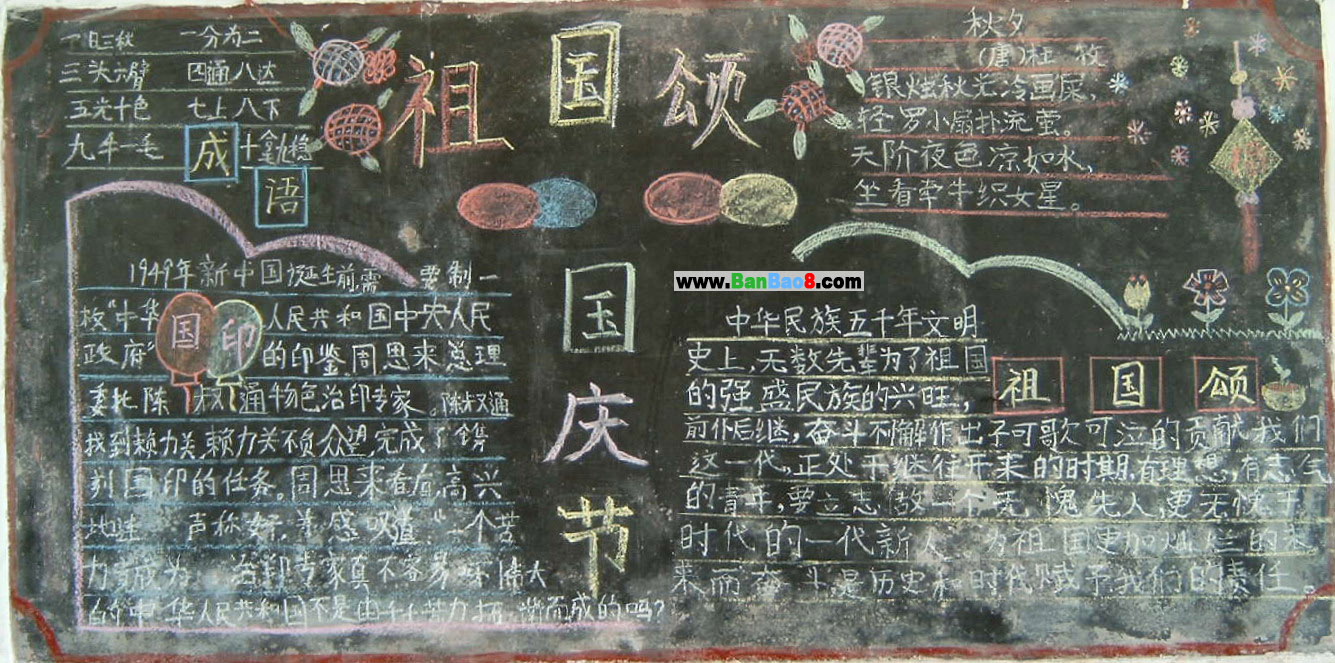 日三秋 一分为二
三头六臂 四通八达
五光十色 七上八下
九牛一毛 十拿九稳
成
语
祖国颂
秋夕
(唐)杜牧
银烛秋光冷画屏,
轻罗小扇扑流萤。
天阶夜色凉如水,
坐看牵牛织女星。
www.BanBao8.com
国
庆
节
1949年新中国诞生前,需要制一
枚“中华人民共和国中央人民
政府”的印鉴周恩来总理
国印
委托陈叔通物色治印专家。陈叔通
找到赖力关,赖力关不负众望,完成了
刻国印的任务。周思来看后高兴
地 声称好,并感叹道:“一个苦
力 成为 治印专家真不容易 伟大
的中华人民共和国不是由千千苦力 而成的吗?
祖国颂
中华民族五千年文明
史上,无数先辈为了祖国
的强盛民族的兴旺,
前仆后继,奋斗不懈作出了可歌可泣的贡献我们
这一代,正处于继往开来的时期.有理想,有志气
的青年,要立志做一个无愧先人,更无愧于
时代的一代新人 为祖国更加灿烂的未
来而奋斗,是历史和时代赋予我们的责任。